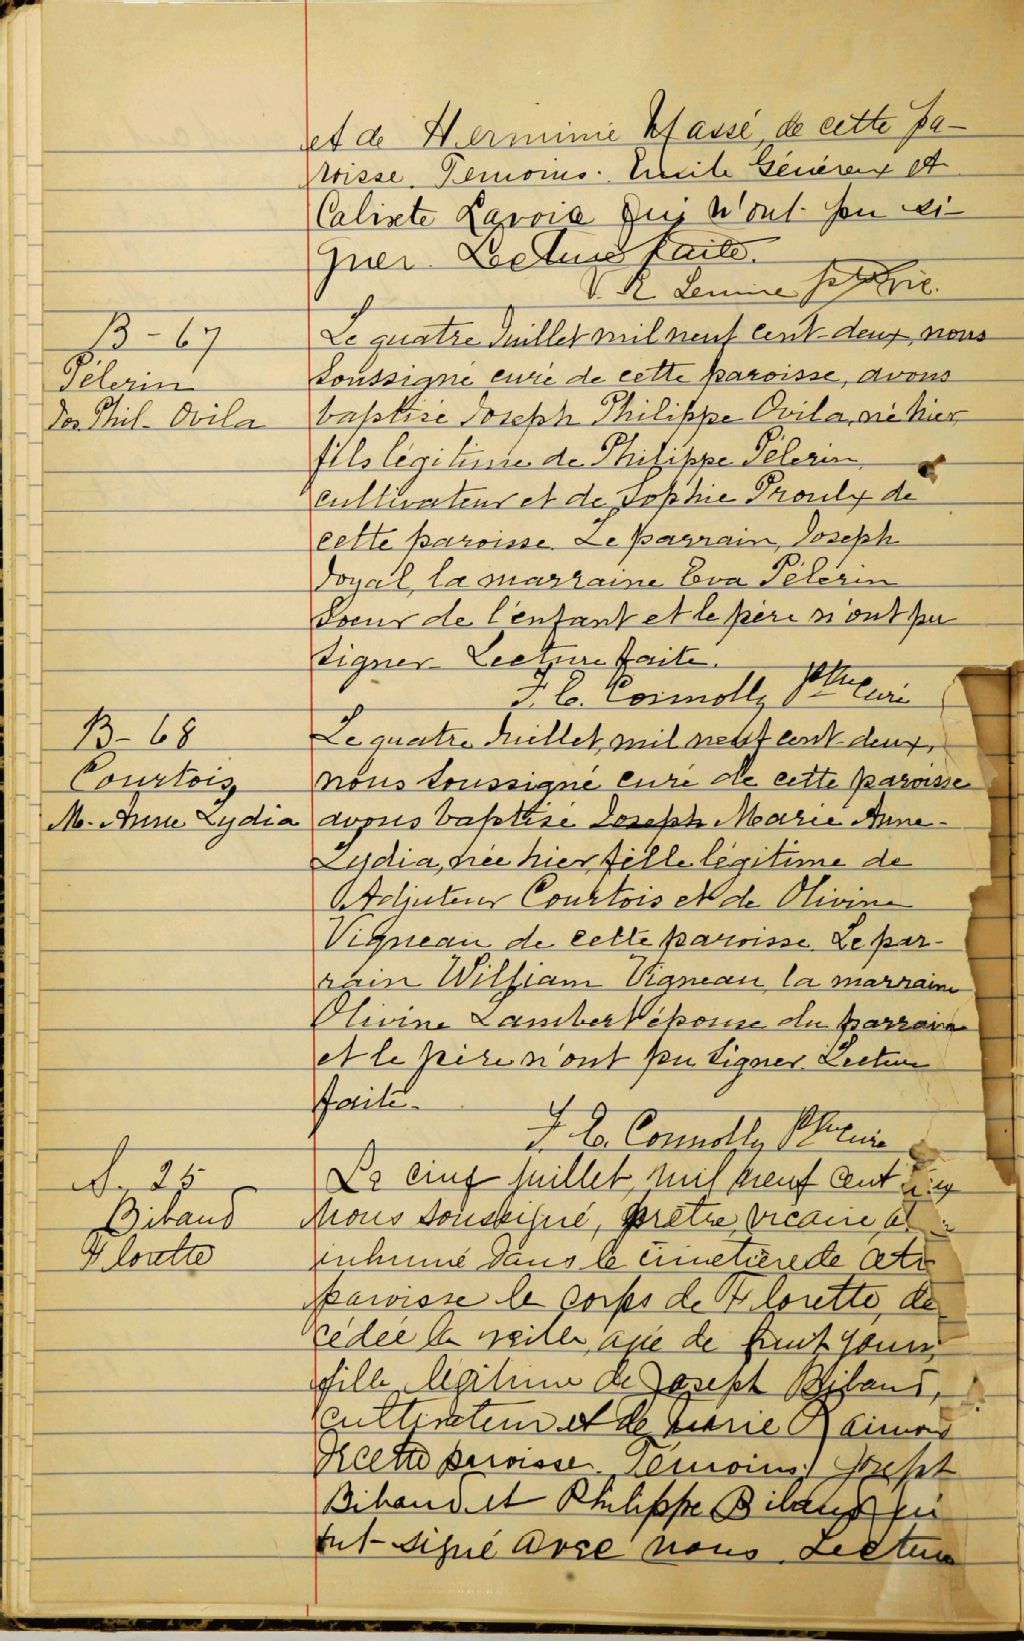 et de Herminie Massé, de cette pa-
roisse. Temoins. Emile Généreux et
Calixte Lavoie qui n'ont pu si-
gner. Lecture faite.
V. E. ptre vic.
B - 67
Pélerin
Jos. Phil. Ovila
Le quatre Juillet mil neuf cent-deux, nous
soussigné curé de cette paroisse, avons
baptisé Joseph Philippe Ovila, né hier,
fils légitime de Philippe Pélerin,
cultivateur et de Sophie Proulx de
cette paroisse. Le parrain, Joseph
Joyal, la marraine Eva Pélerin
soeur de l'enfant et le père n'ont pu
signer. Lecture faite.
F. E. Connolly Ptre Curé
B - 68
Courtois
M. Anne Lydia
Le quatre Juillet, mil neuf cent-deux,
nous soussigné curé de cette paroisse
avons baptisé Joseph Marie Anne-
Lydia, née hier, fille légitime de
Adjuteur Courtois et de Olivine
Vigneau de cette paroisse. Le par-
rain William Vigneau, la marraine
Olivine Lambert épouse du parrain
et le père n'ont pu signer. Lecture
faite.
F. E. Connolly Ptre Curé
S. 25
Bibaud
Florette
Le cinq juillet, mil neuf cent
Nous soussigné, prêtre, vicaire,
inhumé dans le cimetière de cette
paroisse le corps de Florette, dé
cédée la veille, agée de huit jours,
fille légitime de Joseph Bibaud,
cultivateur et de Marie Raimond
de cette paroisse. Témoins, Joseph
Bibaud et Philippe Bibaud qui
ont signé avec nous. Lecture